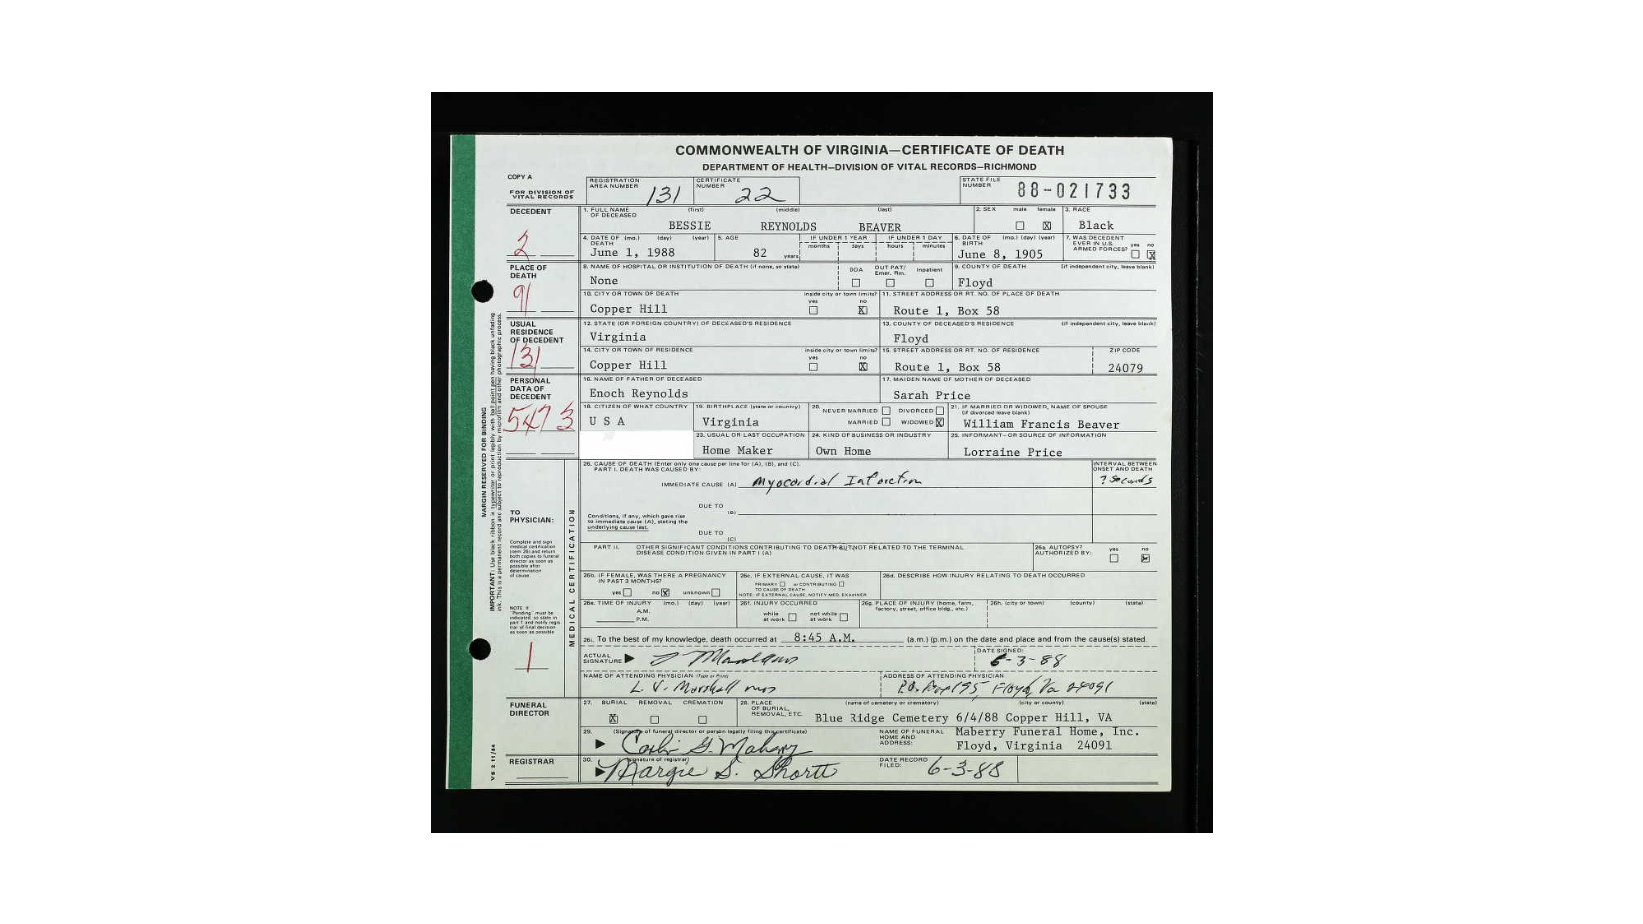 COMMONWEALTH OF VIRGINIA—CERTIFICATE OF DEATH
DEPARTMENT OF HEALTH—DIVISION OF VITAL RECORDS—RICHMOND
COPY A
FOR DIVISION OF VITAL RECORDS
REGISTRATION AREA NUMBER 131
CERTIFICATE NUMBER 22
STATE FILE NUMBER 88-021733
DECEDENT
2
1. FULL NAME OF DECEASED (first) (middle) (last)
BESSIE REYNOLDS BEAVER
2. SEX male female X
3. RACE
Black
4. DATE OF DEATH (mo.) (day) (year)
June 1, 1988
5. AGE
82 years
IF UNDER 1 YEAR months days
IF UNDER 1 DAY hours minutes
6. DATE OF BIRTH (mo.) (day) (year)
June 8, 1905
7. WAS DECEDENT EVER IN U.S. ARMED FORCES? yes no X
PLACE OF DEATH
91
8. NAME OF HOSPITAL OR INSTITUTION OF DEATH (if none, so state)
None
DOA OUT PAT/ Emer. Rm. Inpatient
9. COUNTY OF DEATH (if independent city, leave blank)
Floyd
10. CITY OR TOWN OF DEATH inside city or town limits? yes no X
Copper Hill
11. STREET ADDRESS OR RT. NO. OF PLACE OF DEATH
Route 1, Box 58
USUAL RESIDENCE OF DECEDENT
131
12. STATE (OR FOREIGN COUNTRY) OF DECEASED'S RESIDENCE
Virginia
13. COUNTY OF DECEASED'S RESIDENCE (if independent city, leave blank)
Floyd
14. CITY OR TOWN OF RESIDENCE inside city or town limits? yes no X
Copper Hill
15. STREET ADDRESS OR RT. NO. OF RESIDENCE ZIP CODE
Route 1, Box 58 24079
PERSONAL DATA OF DECEDENT
5473
16. NAME OF FATHER OF DECEASED
Enoch Reynolds
17. MAIDEN NAME OF MOTHER OF DECEASED
Sarah Price
18. CITIZEN OF WHAT COUNTRY
U S A
19. BIRTHPLACE (state or country)
Virginia
20. NEVER MARRIED DIVORCED
MARRIED WIDOWED X
21. IF MARRIED OR WIDOWED, NAME OF SPOUSE (if divorced leave blank)
William Francis Beaver
23. USUAL OR LAST OCCUPATION
Home Maker
24. KIND OF BUSINESS OR INDUSTRY
Own Home
25. INFORMANT—OR SOURCE OF INFORMATION
Lorraine Price
MARGIN RESERVED FOR BINDING
TO PHYSICIAN:
Complete and sign medical certification (item 26) and return both copies to funeral director as soon as possible after determination of cause.
MEDICAL CERTIFICATION
26. CAUSE OF DEATH (Enter only one cause per line for (A), (B), and (C).
PART I. DEATH WAS CAUSED BY:
INTERVAL BETWEEN ONSET AND DEATH
IMMEDIATE CAUSE (A) Myocardial Infarction ? Seconds
DUE TO (B)
Conditions, if any, which gave rise to immediate cause (A), stating the underlying cause last.
DUE TO (C)
PART II. OTHER SIGNIFICANT CONDITIONS CONTRIBUTING TO DEATH BUT NOT RELATED TO THE TERMINAL DISEASE CONDITION GIVEN IN PART I (A)
26a. AUTOPSY? AUTHORIZED BY: yes no
26b. IF FEMALE, WAS THERE A PREGNANCY IN PAST 3 MONTHS?
yes no X unknown
26c. IF EXTERNAL CAUSE, IT WAS
PRIMARY or CONTRIBUTING
TO CAUSE OF DEATH
NOTE: IF EXTERNAL CAUSE, NOTIFY MED. EXAMINER
26d. DESCRIBE HOW INJURY RELATING TO DEATH OCCURRED
26e. TIME OF INJURY (mo.) (day) (year)
A.M.
P.M.
26f. INJURY OCCURRED
while at work not while at work
26g. PLACE OF INJURY (home, farm, factory, street, office bldg., etc.)
26h. (city or town) (county) (state)
1
26i. To the best of my knowledge, death occurred at 8:45 A.M. (a.m.) (p.m.) on the date and place and from the cause(s) stated.
ACTUAL SIGNATURE
DATE SIGNED:
6-3-88
NAME OF ATTENDING PHYSICIAN (Type or Print)
L. V. Marshall
ADDRESS OF ATTENDING PHYSICIAN
P.O. Box 195, Floyd, Va 24091
FUNERAL DIRECTOR
27. BURIAL X REMOVAL CREMATION
28. PLACE OF BURIAL, REMOVAL, ETC. (name of cemetery or crematory) (city or county) (state)
Blue Ridge Cemetery 6/4/88 Copper Hill, VA
29. (Signature of funeral director or person legally filing this certificate)
NAME OF FUNERAL HOME AND ADDRESS:
Maberry Funeral Home, Inc.
Floyd, Virginia 24091
REGISTRAR
30. (signature of registrar)
Margie S. Shortt
DATE RECORD FILED:
6-3-88